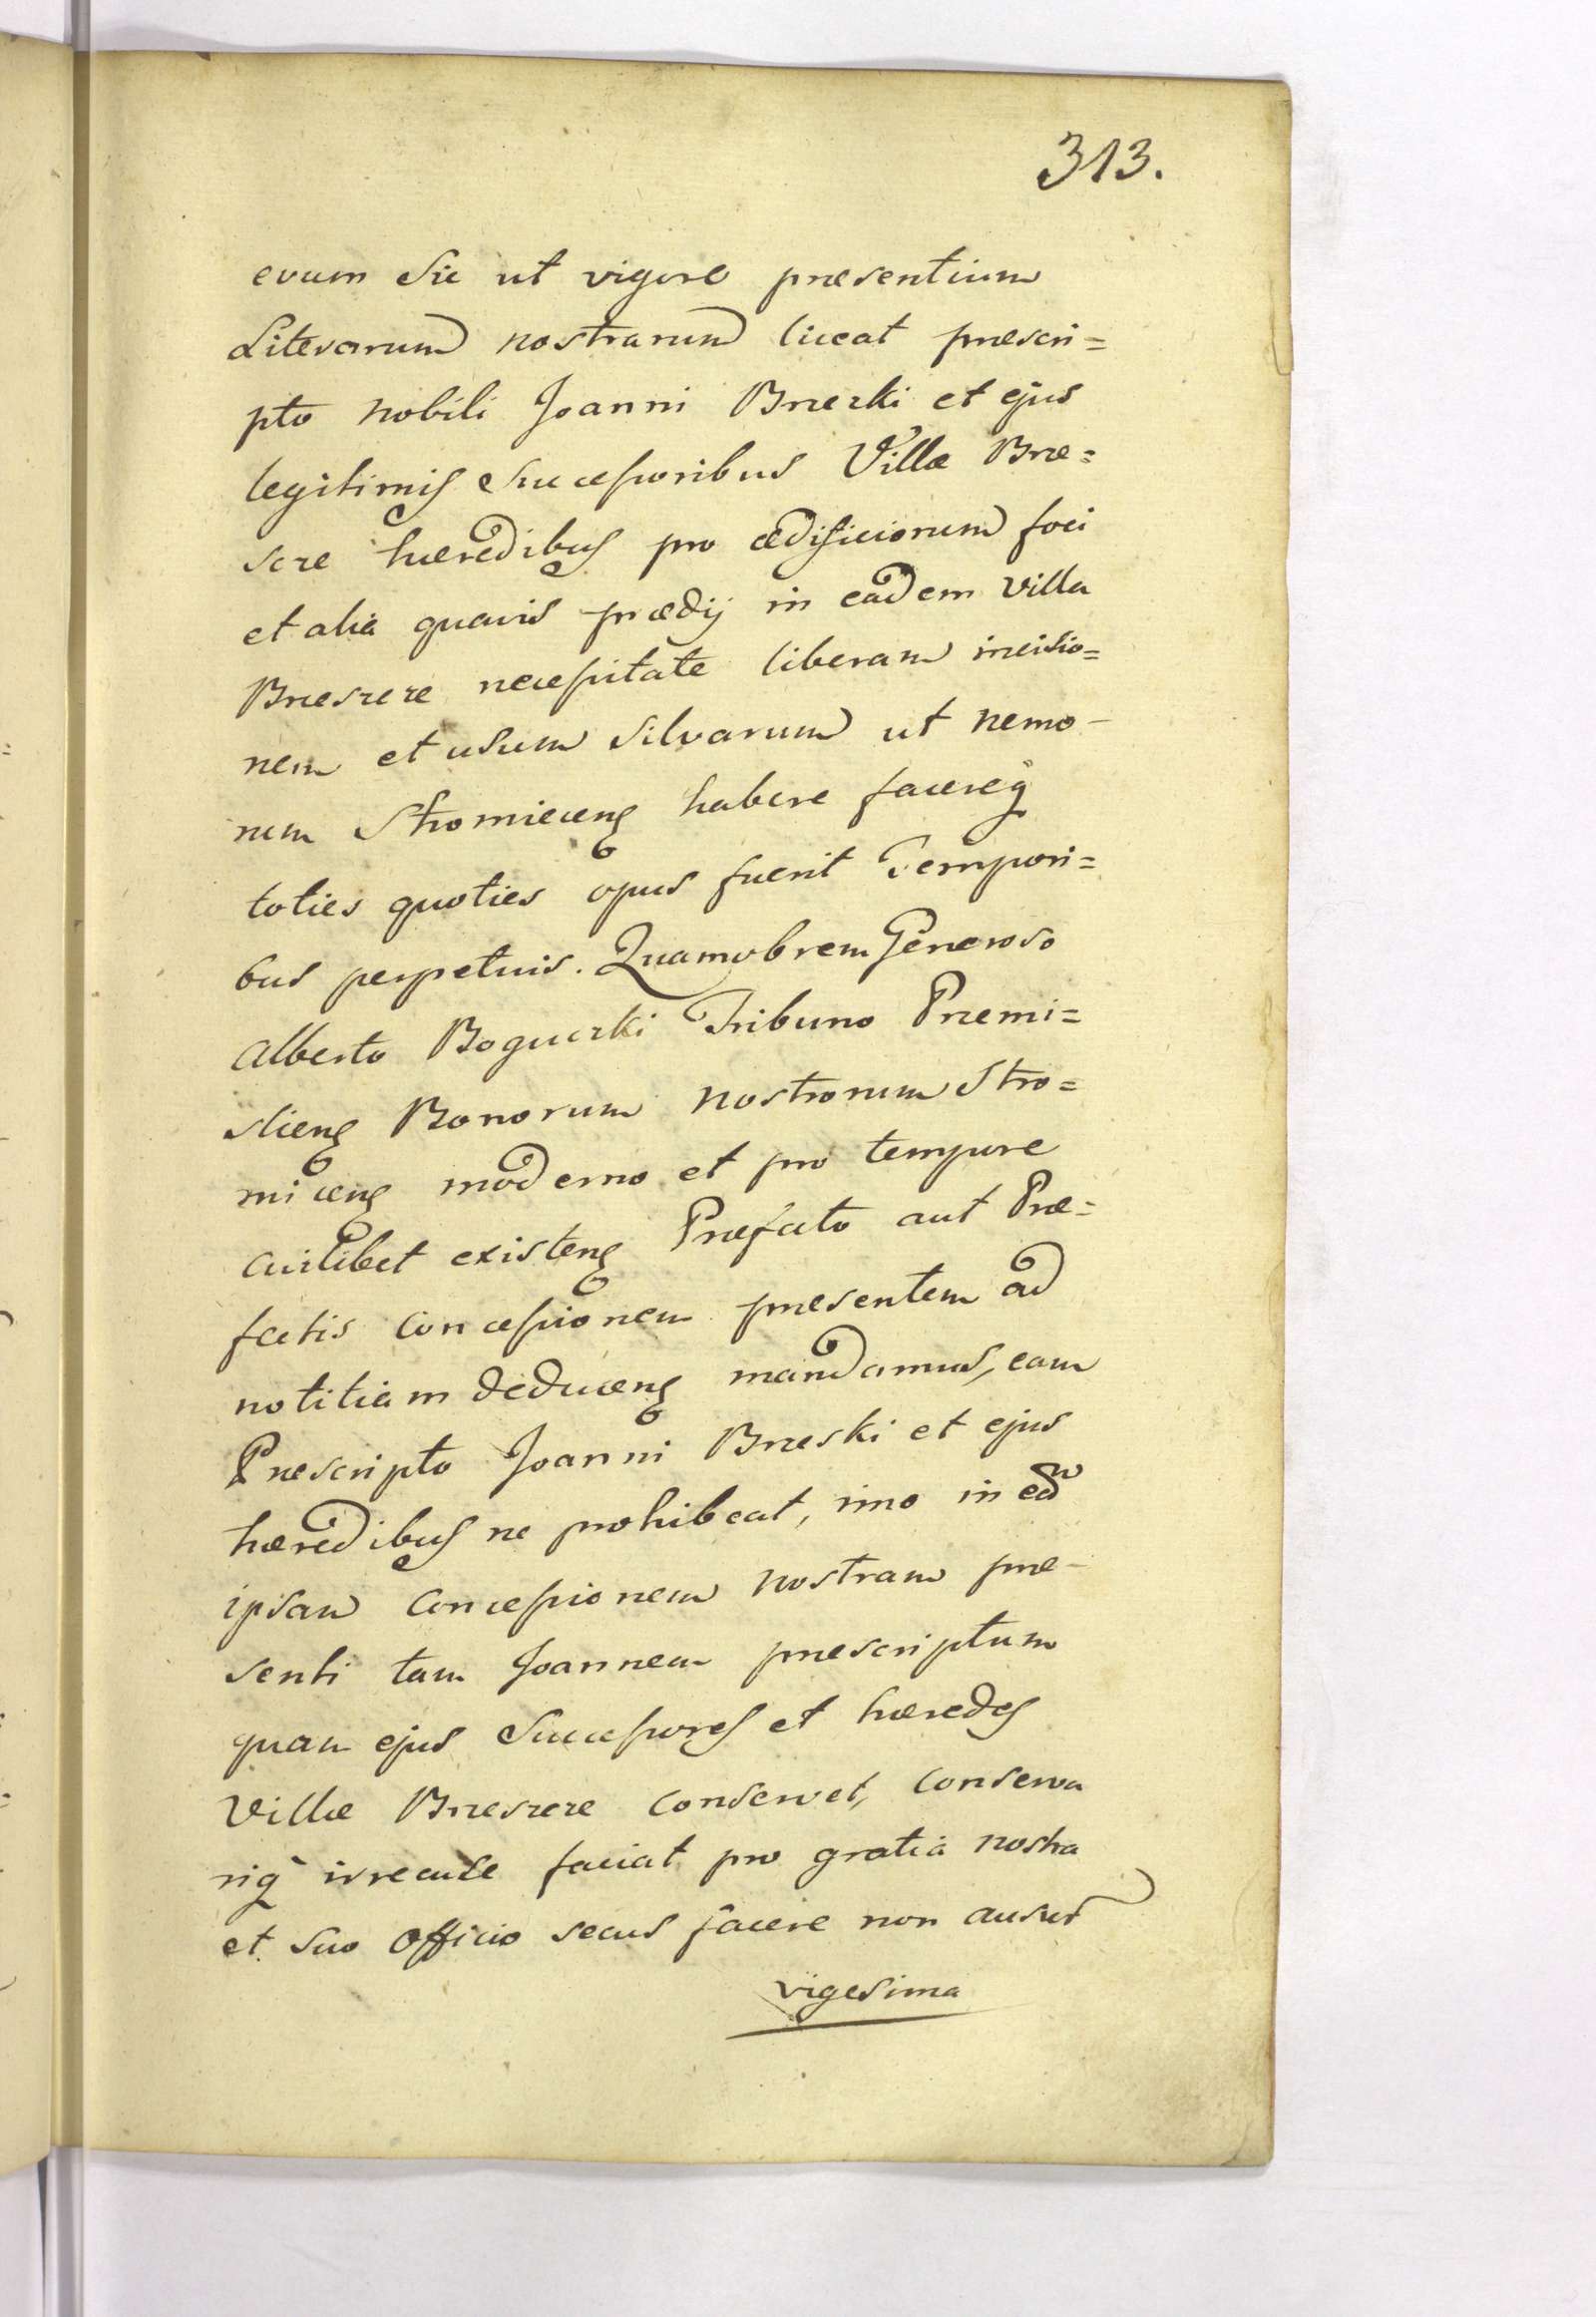 313.
evum Sic ut vigore præsentium
Literarum nostrarum liceat præscri=
pto Nobili Joanni Brzezki et ejus
legitimis Successoribus Villæ Brze=
scze hæredibus pro ædificiorum foci
et alia quavis prædij in eadem Villa
Brzescze necessitate liberam incisio=
nem et usum Silvarum ut nemo-
rum Stromiecens habere facereq
toties quoties opus fuerit Tempori=
bus perpetuis. Quamobrem Generoso
Alberto Boguczki Tribuno Przemi=
sliens Bonorum Nostrorum Stro=
micens moderno et pro tempore
cuilibet existens Præfato aut Præ=
fectis concessionem præsentem ad
notitiam deducens mandamus, eam
Præscripto Joanni Brzeski et ejus
hæredibus ne prohibeat, imo in ead
ipsam concessionem Nostram præ-
senti tam Joannem præscriptum
quam ejus Successores et hæredes
Villæ Brzescze conservet, conserva
riq irrecuse faciat pro gratia nostra
et suo officio secus facere non ausur
vigesima